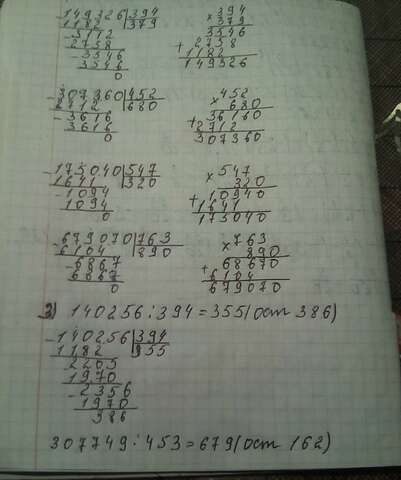 -149326|394
1182|379
-3112
2758
-3546
3546
0
×394
379
3546
+2758
1182
149326
-307360|452
2712|680
-3616
3616
0
×452
680
36160
+2712
307360
-175040|547
1641|320
1094
1094
0
×547
320
10940
+1641
175040
-679070|763
6104|890
-6867
6867
0
×763
890
68670
+6104
679070
140256:394=355(ост 386)
-140256|394
1182|355
2205
1970
-2356
1970
386
307749:453=679(ост 162)